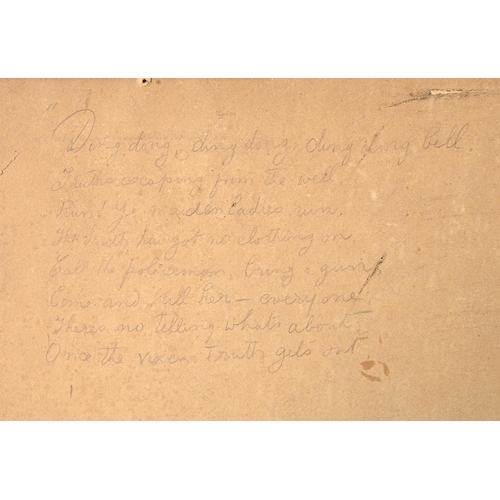 "Ding dong, ding dong, ding dong bell.
Truth's escaping from the well.
Run! Ye maiden ladies, run,
For Truth has got no clothing on,
Call the policeman, bring a gun,
Come and kill her – everyone,
There's no telling what's about.
Once the vixen Truth gets out